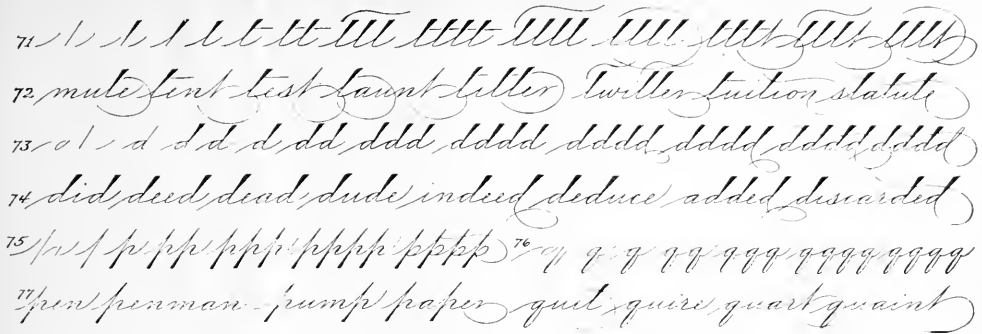 71 t tt ttt tttt tttt tttt tttt tttt tttt
72 mute tent test taunt titter twitter tuition statute
73 d d d d dd ddd dddd dddd dddd dddd dddd
74 did deed dead dude indeed deduce added discarded
75 p pp ppp pppp pppp 76 q q q qq qqq qqqq qqqq
77 pen penman pump paper quit quire quart quaint